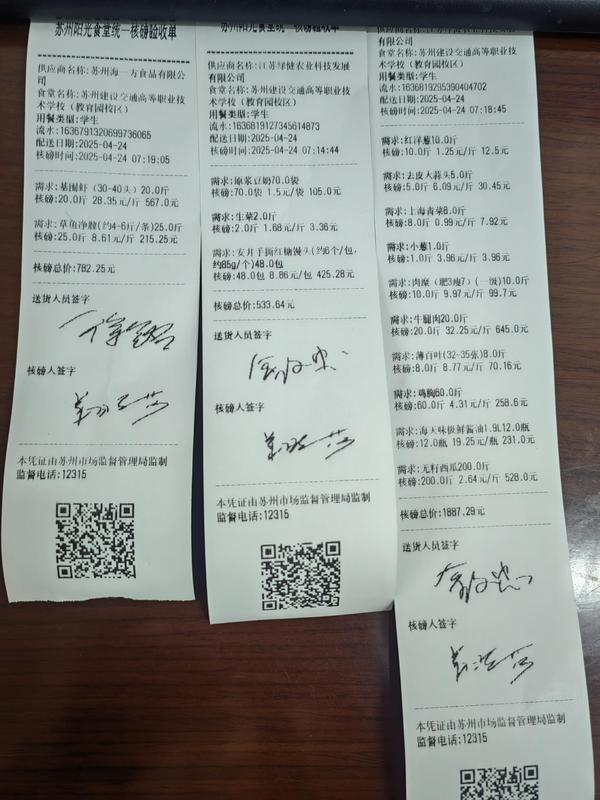 苏州阳光食堂统一核磅验收单
供应商名称:苏州海一方食品有限公
司
食堂名称:苏州建设交通高等职业技
术学校（教育园校区）
用餐类型:学生
流水:1636791320699736065
配送日期:2025-04-24
核磅时间:2025-04-24 07:19:05
需求:基围虾（30-40头）20.0斤
核磅:20.0斤 28.35元/斤 567.0元
需求:草鱼净膛(约4-6斤/条)25.0斤
核磅:25.0斤 8.61元/斤 215.25元
核磅总价:782.25元
送货人员签字
核磅人签字
本凭证由苏州市场监督管理局监制
监督电话:12315
苏州阳光食堂统一核磅验收单
供应商名称:江苏绿健农业科技发展
有限公司
食堂名称:苏州建设交通高等职业技
术学校（教育园校区）
用餐类型:学生
流水:1636819127345614873
配送日期:2025-04-24
核磅时间:2025-04-24 07:14:44
需求:原浆豆奶70.0袋
核磅:70.0袋 1.5元/袋 105.0元
需求:生菜2.0斤
核磅:2.0斤 1.68元/斤 3.36元
需求:安井手撕红糖馒头(约6个/包,
约85g/个)48.0包
核磅:48.0包 8.86元/包 425.28元
核磅总价:533.64元
送货人员签字
核磅人签字
本凭证由苏州市场监督管理局监制
监督电话:12315
有限公司
食堂名称:苏州建设交通高等职业技
术学校（教育园校区）
用餐类型:学生
流水:1636819295390404702
配送日期:2025-04-24
核磅时间:2025-04-24 07:18:45
需求:红洋葱10.0斤
核磅:10.0斤 1.25元/斤 12.5元
需求:去皮大蒜头5.0斤
核磅:5.0斤 6.09元/斤 30.45元
需求:上海青菜8.0斤
核磅:8.0斤 0.99元/斤 7.92元
需求:小葱1.0斤
核磅:1.0斤 3.96元/斤 3.96元
需求:肉糜（肥3瘦7）(一级)10.0斤
核磅:10.0斤 9.97元/斤 99.7元
需求:牛腿肉20.0斤
核磅:20.0斤 32.25元/斤 645.0元
需求:薄百叶(32-35张)8.0斤
核磅:8.0斤 8.77元/斤 70.16元
需求:鸡胸60.0斤
核磅:60.0斤 4.31元/斤 258.6元
需求:海天味极鲜酱油1.9L12.0瓶
核磅:12.0瓶 19.25元/瓶 231.0元
需求:无籽西瓜200.0斤
核磅:200.0斤 2.64元/斤 528.0元
核磅总价:1887.29元
送货人员签字
核磅人签字
本凭证由苏州市场监督管理局监制
监督电话:12315